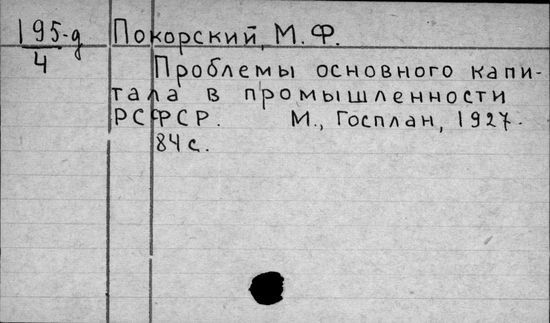 195-д
4
Покорский, М. Ф.
Проблемы основного капи-
тала в промышленности
РСФСР. М., Госплан, 1927.
84 с.